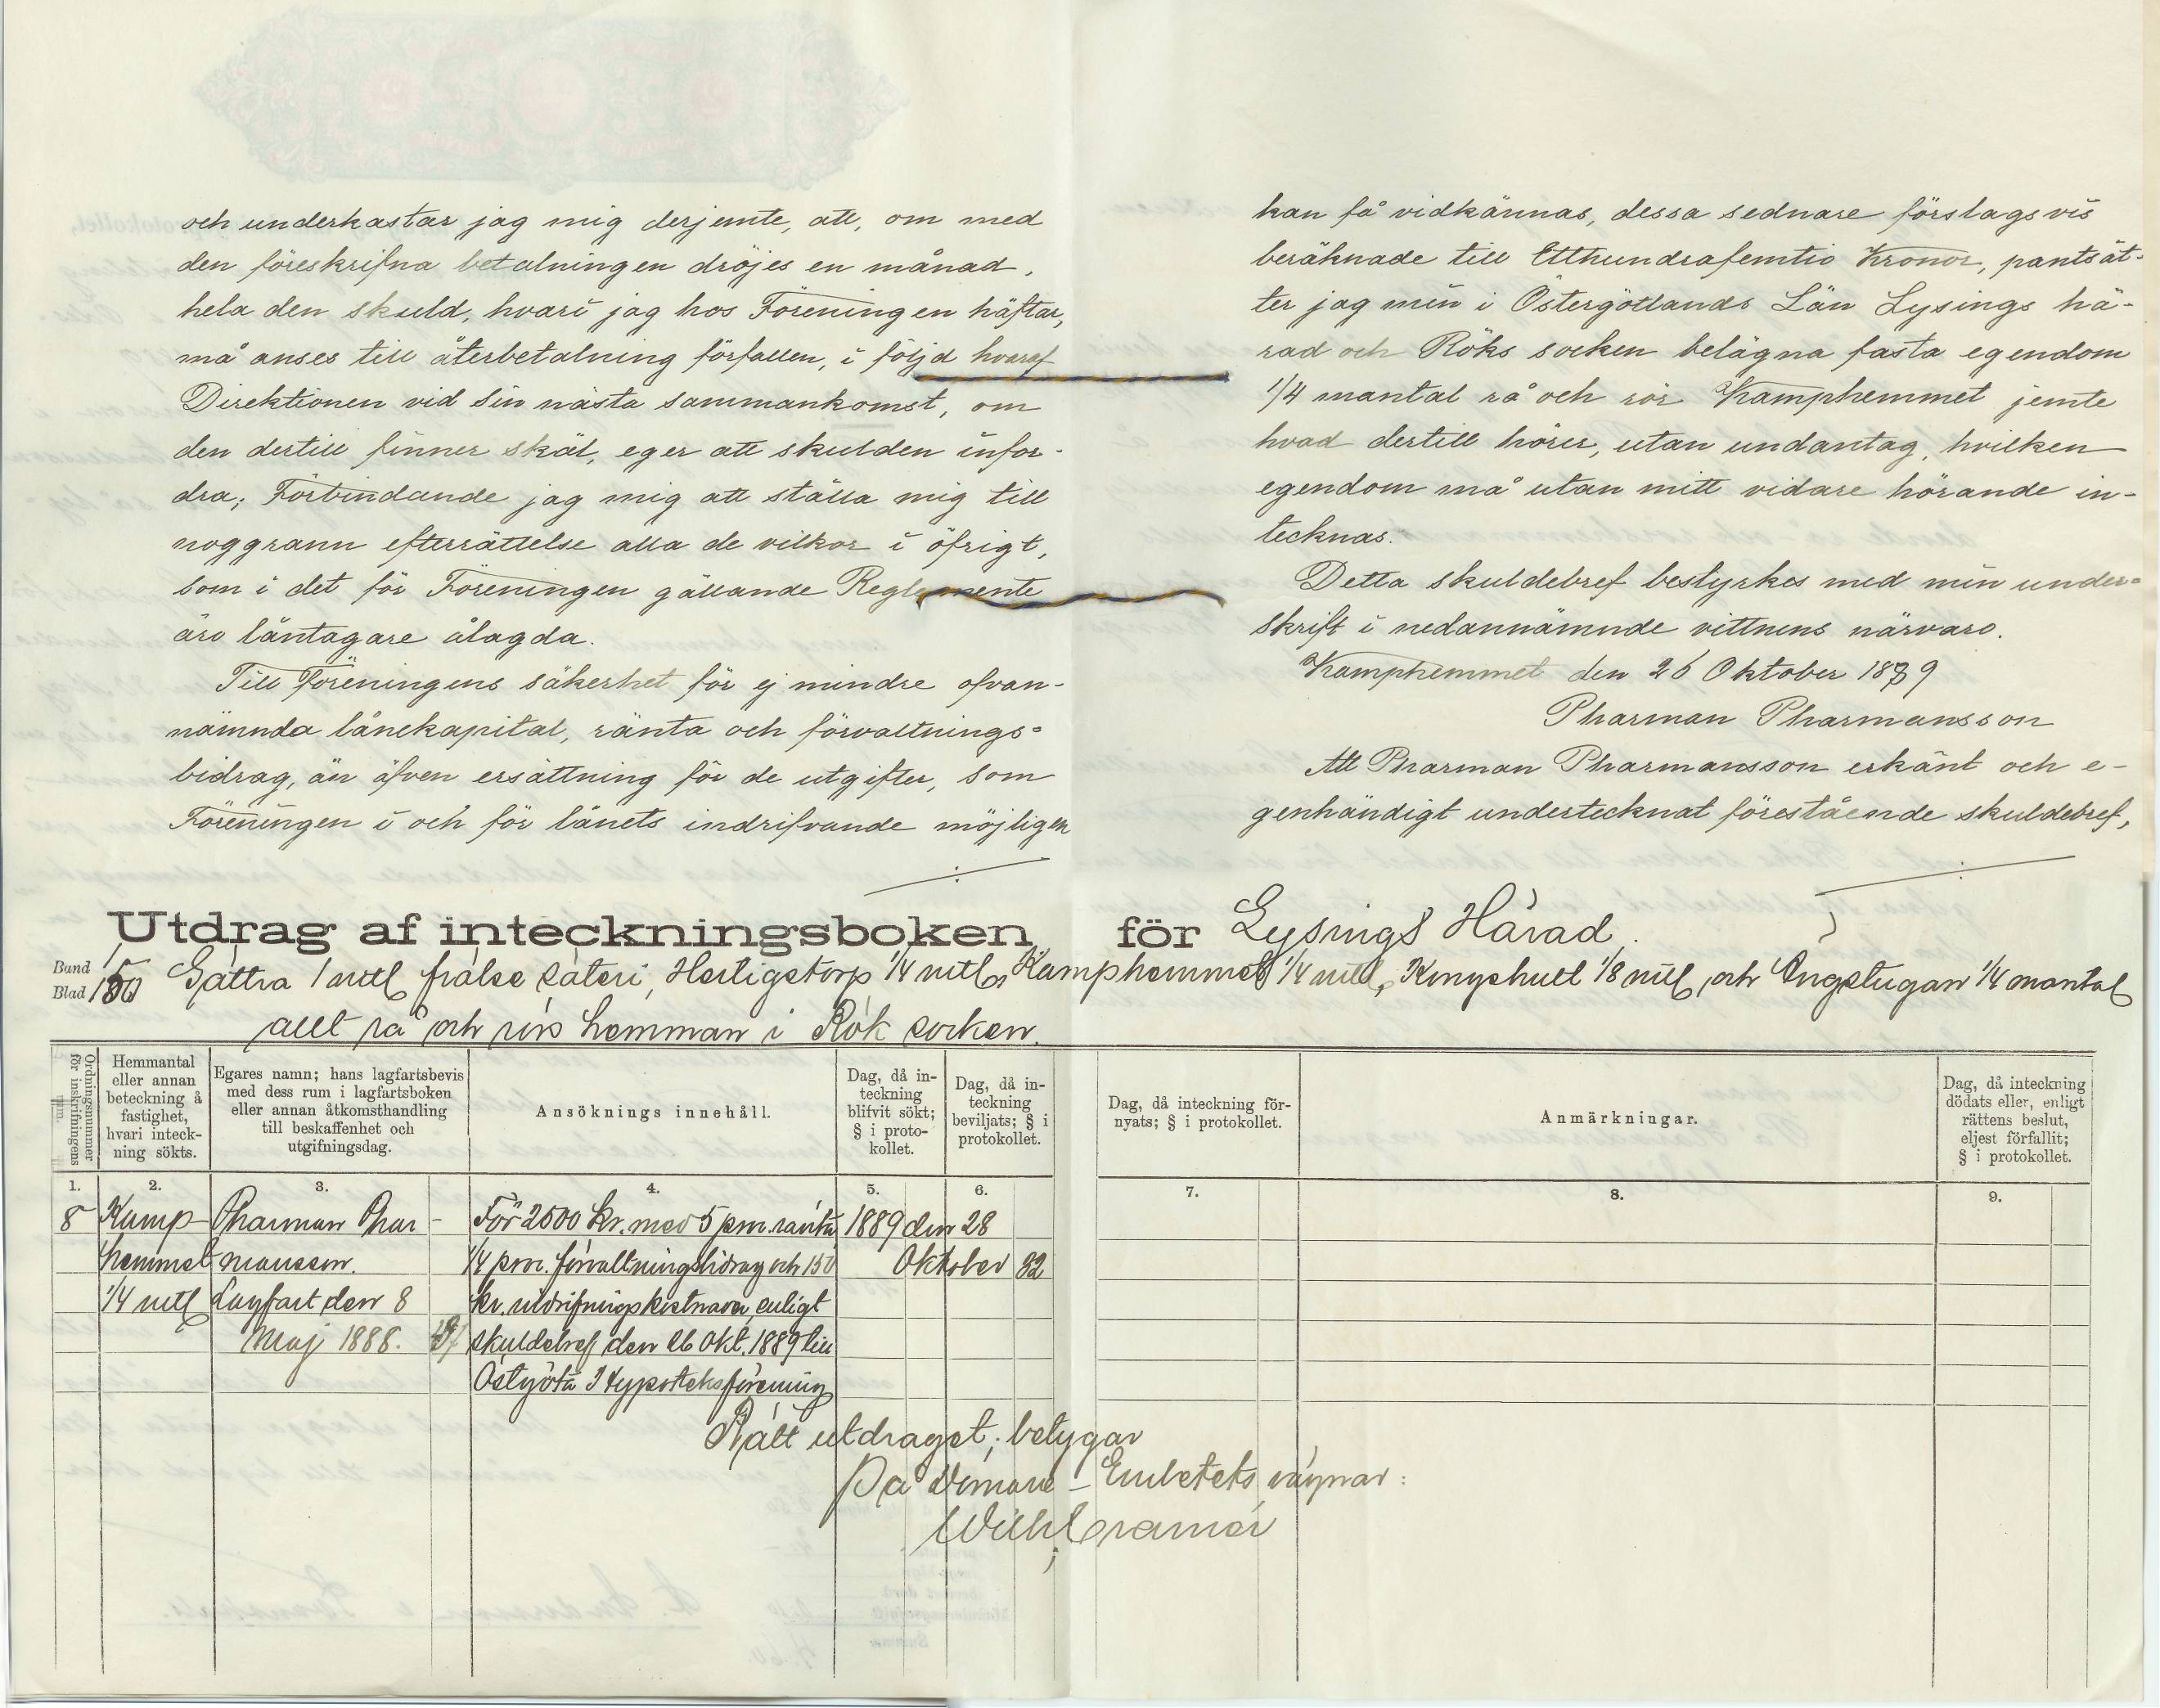 och underkastar jag mig derjemte, att, om med
den föreskrifna betalningen dröjes en månad,
hela den skuld, hvari jag hos Föreningen häftar,
må anses till återbetalning förfallen, i följd hvaraf
Direktionen vid sin nästa sammankomst, om
den dertill finner skäl, eger att skulden infor-
dra; Förbindande jag mig att ställa mig till
noggrann efterrättelse alla de vilkor i öfrigt,
som i det för Föreningen gällande Reglemente
äro låntagare ålagda.
Till Föreningens säkerhet för ej mindre ofvan-
nämnda lånekapital, ränta och förvaltnings-
bidrag, än äfven ersättning för de utgifter, som
Föreningen i och för lånets indrifvande möjligen
kan få vidkännas, dessa sednare förslagsvis
beräknade till Etthundrafemtio Kronor, pantsät-
ter jag min i Östergötlands Län Lysings hä-
rad och Röks socken belägna fasta egendom
1/4 mantal rå och rör Kamphemmet jemte
hvad dertill hörer, utan undantag, hvilken
egendom må utan mitt vidare hörande in-
tecknas.
Detta skuldebref bestyrkes med min under-
skrift i nedannämnde vittnens närvaro.
Kamphemmet den 26 Oktober 1889
Pharman Pharmansson
Att Pharman Pharmansson erkänt och e-
genhändigt undertecknat förestående skuldebref,
Utdrag af inteckningsboken för Lysings Härad.
Band 1
Blad 150 Sättra 1 mtl frälse säteri, Hertigstorp 1/4 mtl, Kamphemmet 1/4 mtl, Kongshult 1/8 mtl och Ängstugan 1/4 mantal
allt rå och rörs hemman i Rök socken.
Ordningsnummer för inskrifningens rum.
Hemmantal eller annan beteckning å fastighet, hvari inteckning sökts.
Egares namn; hans lagfartsbevis med dess rum i lagfartsboken eller annan åtkomsthandling till beskaffenhet och utgifningsdag.
Ansöknings innehåll.
Dag, då inteckning blifvit sökt; § i protokollet.
Dag, då inteckning beviljats; § i protokollet.
Dag, då inteckning förnyats; § i protokollet.
Anmärkningar.
Dag, då inteckning dödats eller, enligt rättens beslut, eljest förfallit; § i protokollet.
1. 2. 3. 4. 5. 6. 7. 8. 9.
8 Kamp- Pharman Phar- För 2500 kr. med 5 pro. ränta 1889 den 28
hemmet mansson. 1/4 pro. förvaltningsbidrag och 150 Oktober 32
1/4 mtl Lagfart den 8 kr. utdrifningskostnader, enligt
Maj 1888. skuldebref den 26 Okt. 1889 till
Östgöta Hypoteksförening
Rätt utdraget, betygar
På Domare-Embetets vägnar:
Wilh. Cramér